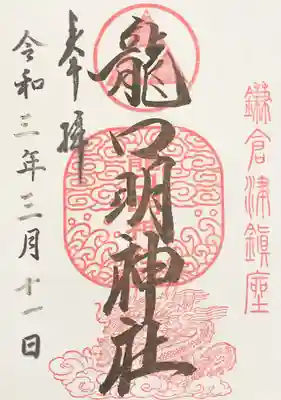 鎌倉津鎮座
奉拝
龍口明神社
令和三年三月十一日